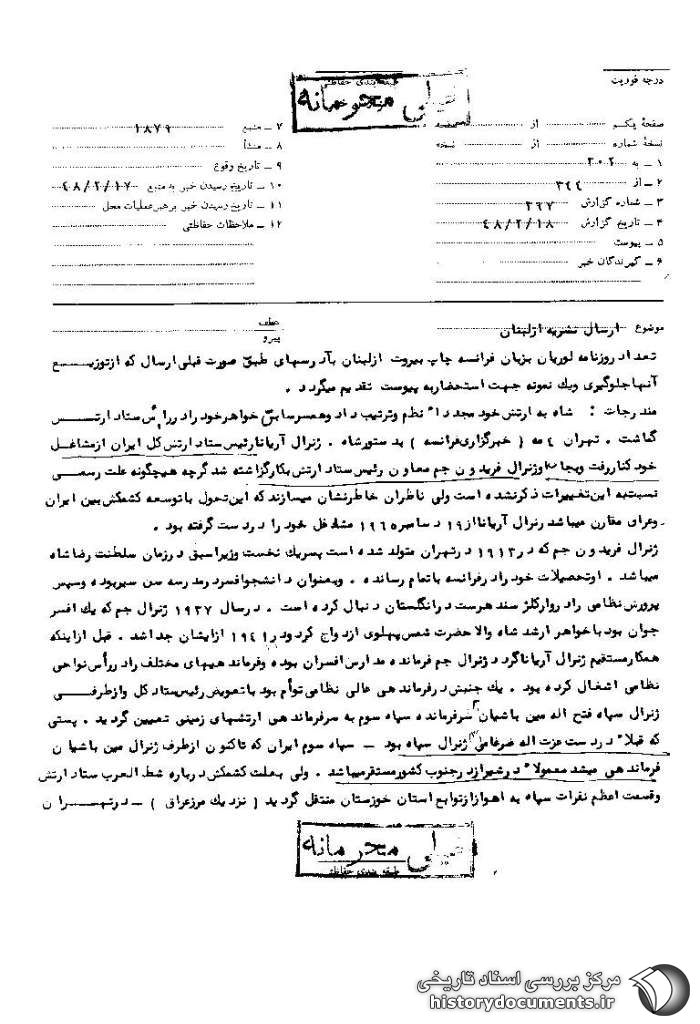 درجه فوریت
طبقه بندی حفاظتی
خیلی محرمانه
صفحهٔ یکم از صفحه
نسخهٔ شماره از نسخه
۱ ــ به ۳۰۲
۲ ــ از ۳٤٤
۳ ــ شماره گزارش ۲۶۷
٤ ــ تاریخ گزارش ٤۸/۲/۱۸
۵ ــ پیوست
۶ ــ گیرندگان خبر
۷ ــ منبع ۱۸۷۹
۸ ــ منشأ
۹ ــ تاریخ وقوع
۱۰ ــ تاریخ رسیدن خبر به منبع ٤۸/۲/۱۷
۱۱ ــ تاریخ رسیدن خبر برهبر عملیات محل
۱۲ ــ ملاحظات حفاظتی
موضوع ارسال نشریه ازلبنان
عطف
پیرو
تعداد روزنامه لوریان بزبان فرانسه چاپ بیروت ازلبنان بآدرسهای طبق صورت قبلی ارسال که ازتوزیع
آنها جلوگیری ویک نمونه جهت استحضار به پیوست تقدیم میگردد .
مندرجات : شاه به ارتش خود مجدداً نظم وترتیب داد وهمسرسابق خواهرخود را در رأس ستاد ارتش
گذاشت . تهران ٤ مه ( خبرگزاری فرانسه ) بدستورشاه . ژنرال آریانا رئیس ستاد ارتش کل ایران ازمشاغل
خود کناررفت وبجای اوژنرال فریدون جم معاون رئیس ستاد ارتش بکارگزاشته شد گرچه هیچگونه علت رسمی
نسبت به این تغییرات ذکرنشده است ولی ناظران خاطرنشان میسازند که این تحول با توسعه کشمکش بین ایران
وعراق مقارن میباشد ژنرال آریانا از ۱۹ دسامبر ۱۹۶۵ مشاغل خود را در دست گرفته بود .
ژنرال فریدون جم که در ۱۹۱۳ درتهران متولد شده است پسریک نخست وزیراسبق درزمان سلطنت رضاشاه
میباشد . اوتحصیلات خود را درفرانسه باتمام رسانده . وبعنوان دانشجوافسر درمدرسه سن سیربوده وسپس
پرورش نظامی را در وارکلژ سندهرست درانگلستان دنبال کرده است . درسال ۱۹۳۷ ژنرال جم که یک افسر
جوان بود باخواهر ارشد شاه والاحضرت شمس پهلوی ازدواج کرد ودر ۱۹٤۱ ازایشان جدا شد . قبل ازاینکه
همکارمستقیم ژنرال آریاناگردد ژنرال جم فرمانده مدارس افسران بوده وفرماندهیهای مختلف را در رأس نواحی
نظامی اشغال کرده بود . یک جنبش درفرماندهی عالی نظامی توأم بود باتعویض رئیس ستاد کل وازطرفی
ژنرال سپاه فتح اله مین باشیان سرفرمانده سپاه سوم به سرفرماندهی ارتشهای زمینی تعیین گردید . پستی
که قبلاً در دست عزت اله ضرغامی ژنرال سپاه بود ــ سپاه سوم ایران که تاکنون ازطرف ژنرال مین باشیان
فرماندهی میشد معمولاً درشیراز درجنوب کشورمستقرمیباشد . ولی بعلت کشمکش درباره شط العرب ستاد ارتش
وقسمت اعظم نفرات سپاه به اهواز ازتوابع استان خوزستان منتقل گردید ( نزدیک مرزعراق ) ــ درتهران
خیلی محرمانه
طبقه بندی حفاظتی
مرکز بررسی اسناد تاریخی
historydocuments.ir